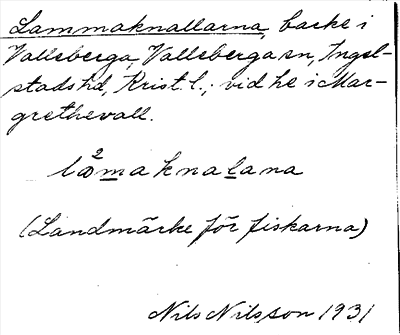 Lammaknallarna, backe i
Valleberga, Valleberga sn, Ingel-
stads hd, Krist. l.; vid he i Mar-
grethevall.
lamaknalana
(Landmärke för fiskarna)
Nils Nilsson 1931